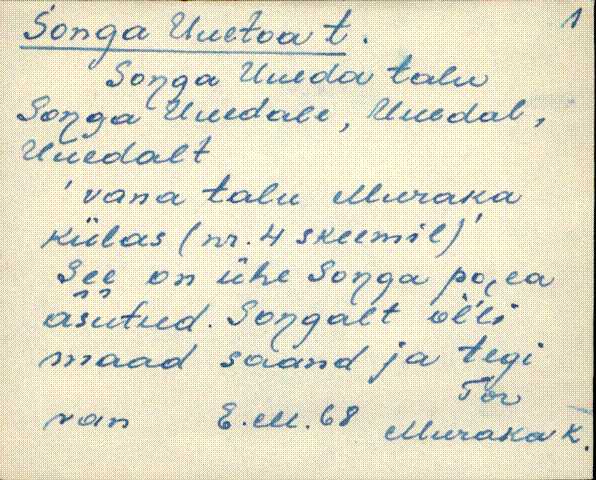 Songa Uuetoa t. 1
Soŋga Uueda talu
Soŋga Uuedale, Uuedal,
Uuedalt
'vana talu Muraka
külas (nr. 4 skeemil)'
See on ühe Soŋga poea
asutud. Soŋgalt olli
maad saand ja tegi
Tor
van E.M. 68 Muraka k.